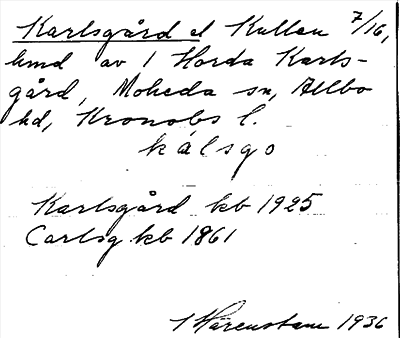 Karlsgård el Kullen 7/16,
hmd av 1 Horda Karls-
gård, Moheda sn, Allbo
hd, Kronobs l.
kálsgo
Karlsgård kb 1925
Carlsg kb 1861
1 Härenstam 1936